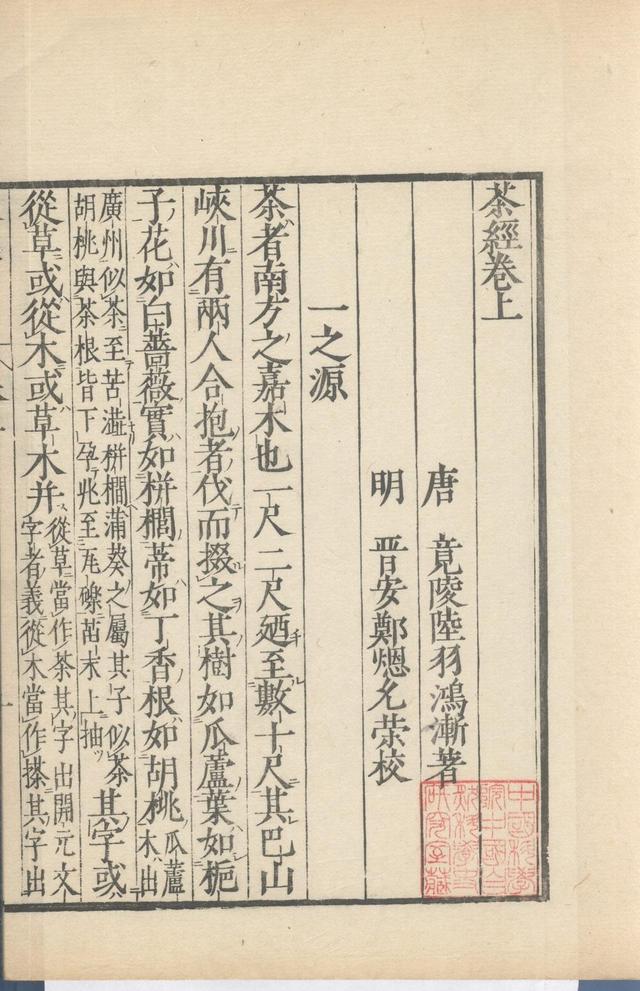 茶經卷上
唐 竟陵陸羽鴻漸著
明 晋安鄭熜允荣校
一之源
茶者南方之嘉木也一尺二尺廼至數十尺其巴山
峽川有兩人合抱者伐而掇之其樹如瓜蘆葉如梔
子花如白薔薇實如栟櫚蒂如丁香根如胡桃瓜蘆木出
廣州似茶至苦澁栟櫚蒲葵之屬其子似茶胡桃與茶根皆下孕兆至瓦礫苗木上抽其字或
從草或從木或草木并從草當作茶其字出開元文字者義從木當作搽其字出
中國科學
院中國自
然科學史
研究室藏